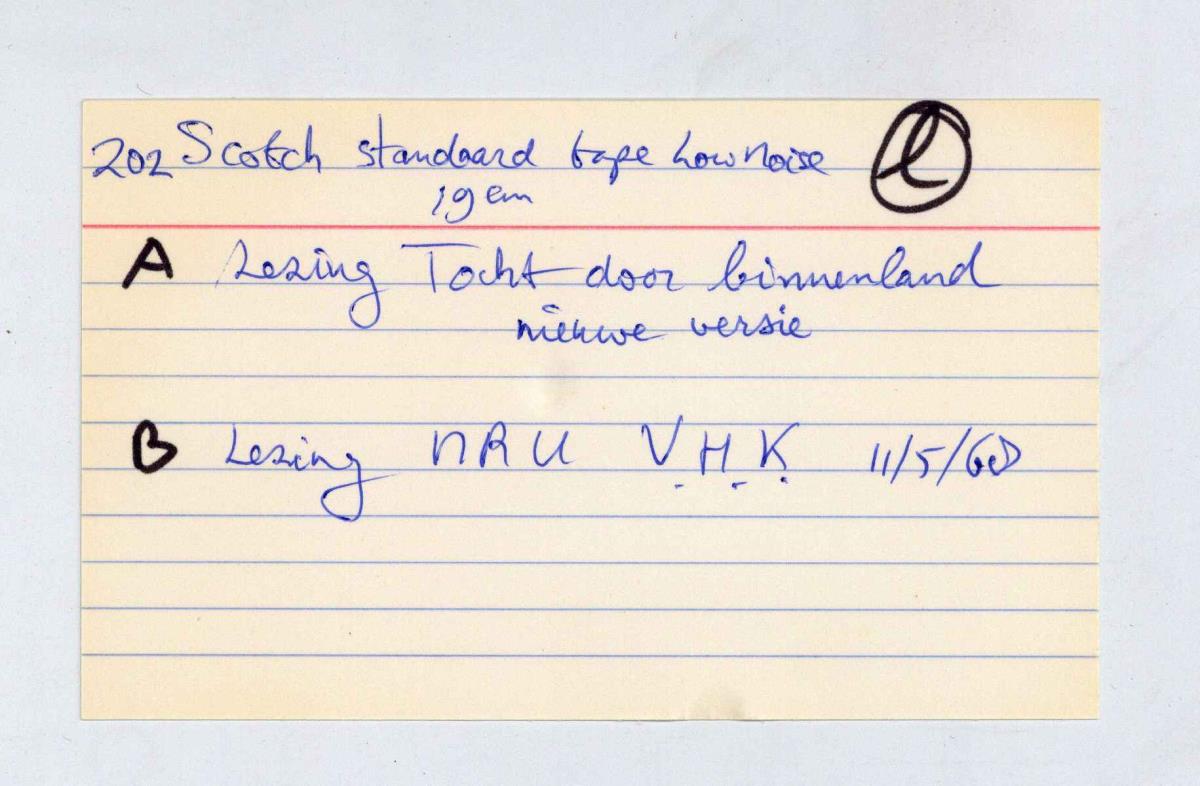 202 Scotch standaard tape Low Noise ⓛ
19 cm
A Lezing Tocht door binnenland
nieuwe versie
B Lezing NRU V.H.K. 11/5/68